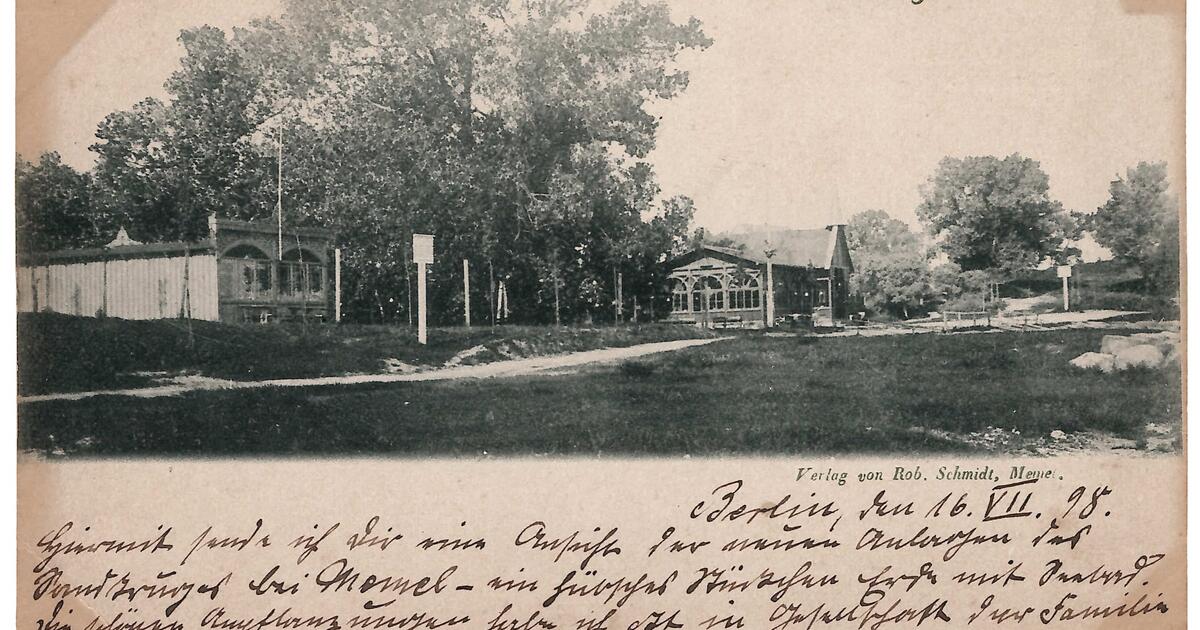 Verlag von Rob. Schmidt, Memel.
Berlin, den 16. VII. 98.
Hiermit sende ich Dir eine Ansicht der neuen Anlagen des
Sandkruges bei Memel – ein hübsches Stückchen Erde mit Seebad.
Die schönen Anpflanzungen habe ich oft in Gesellschaft der Familie